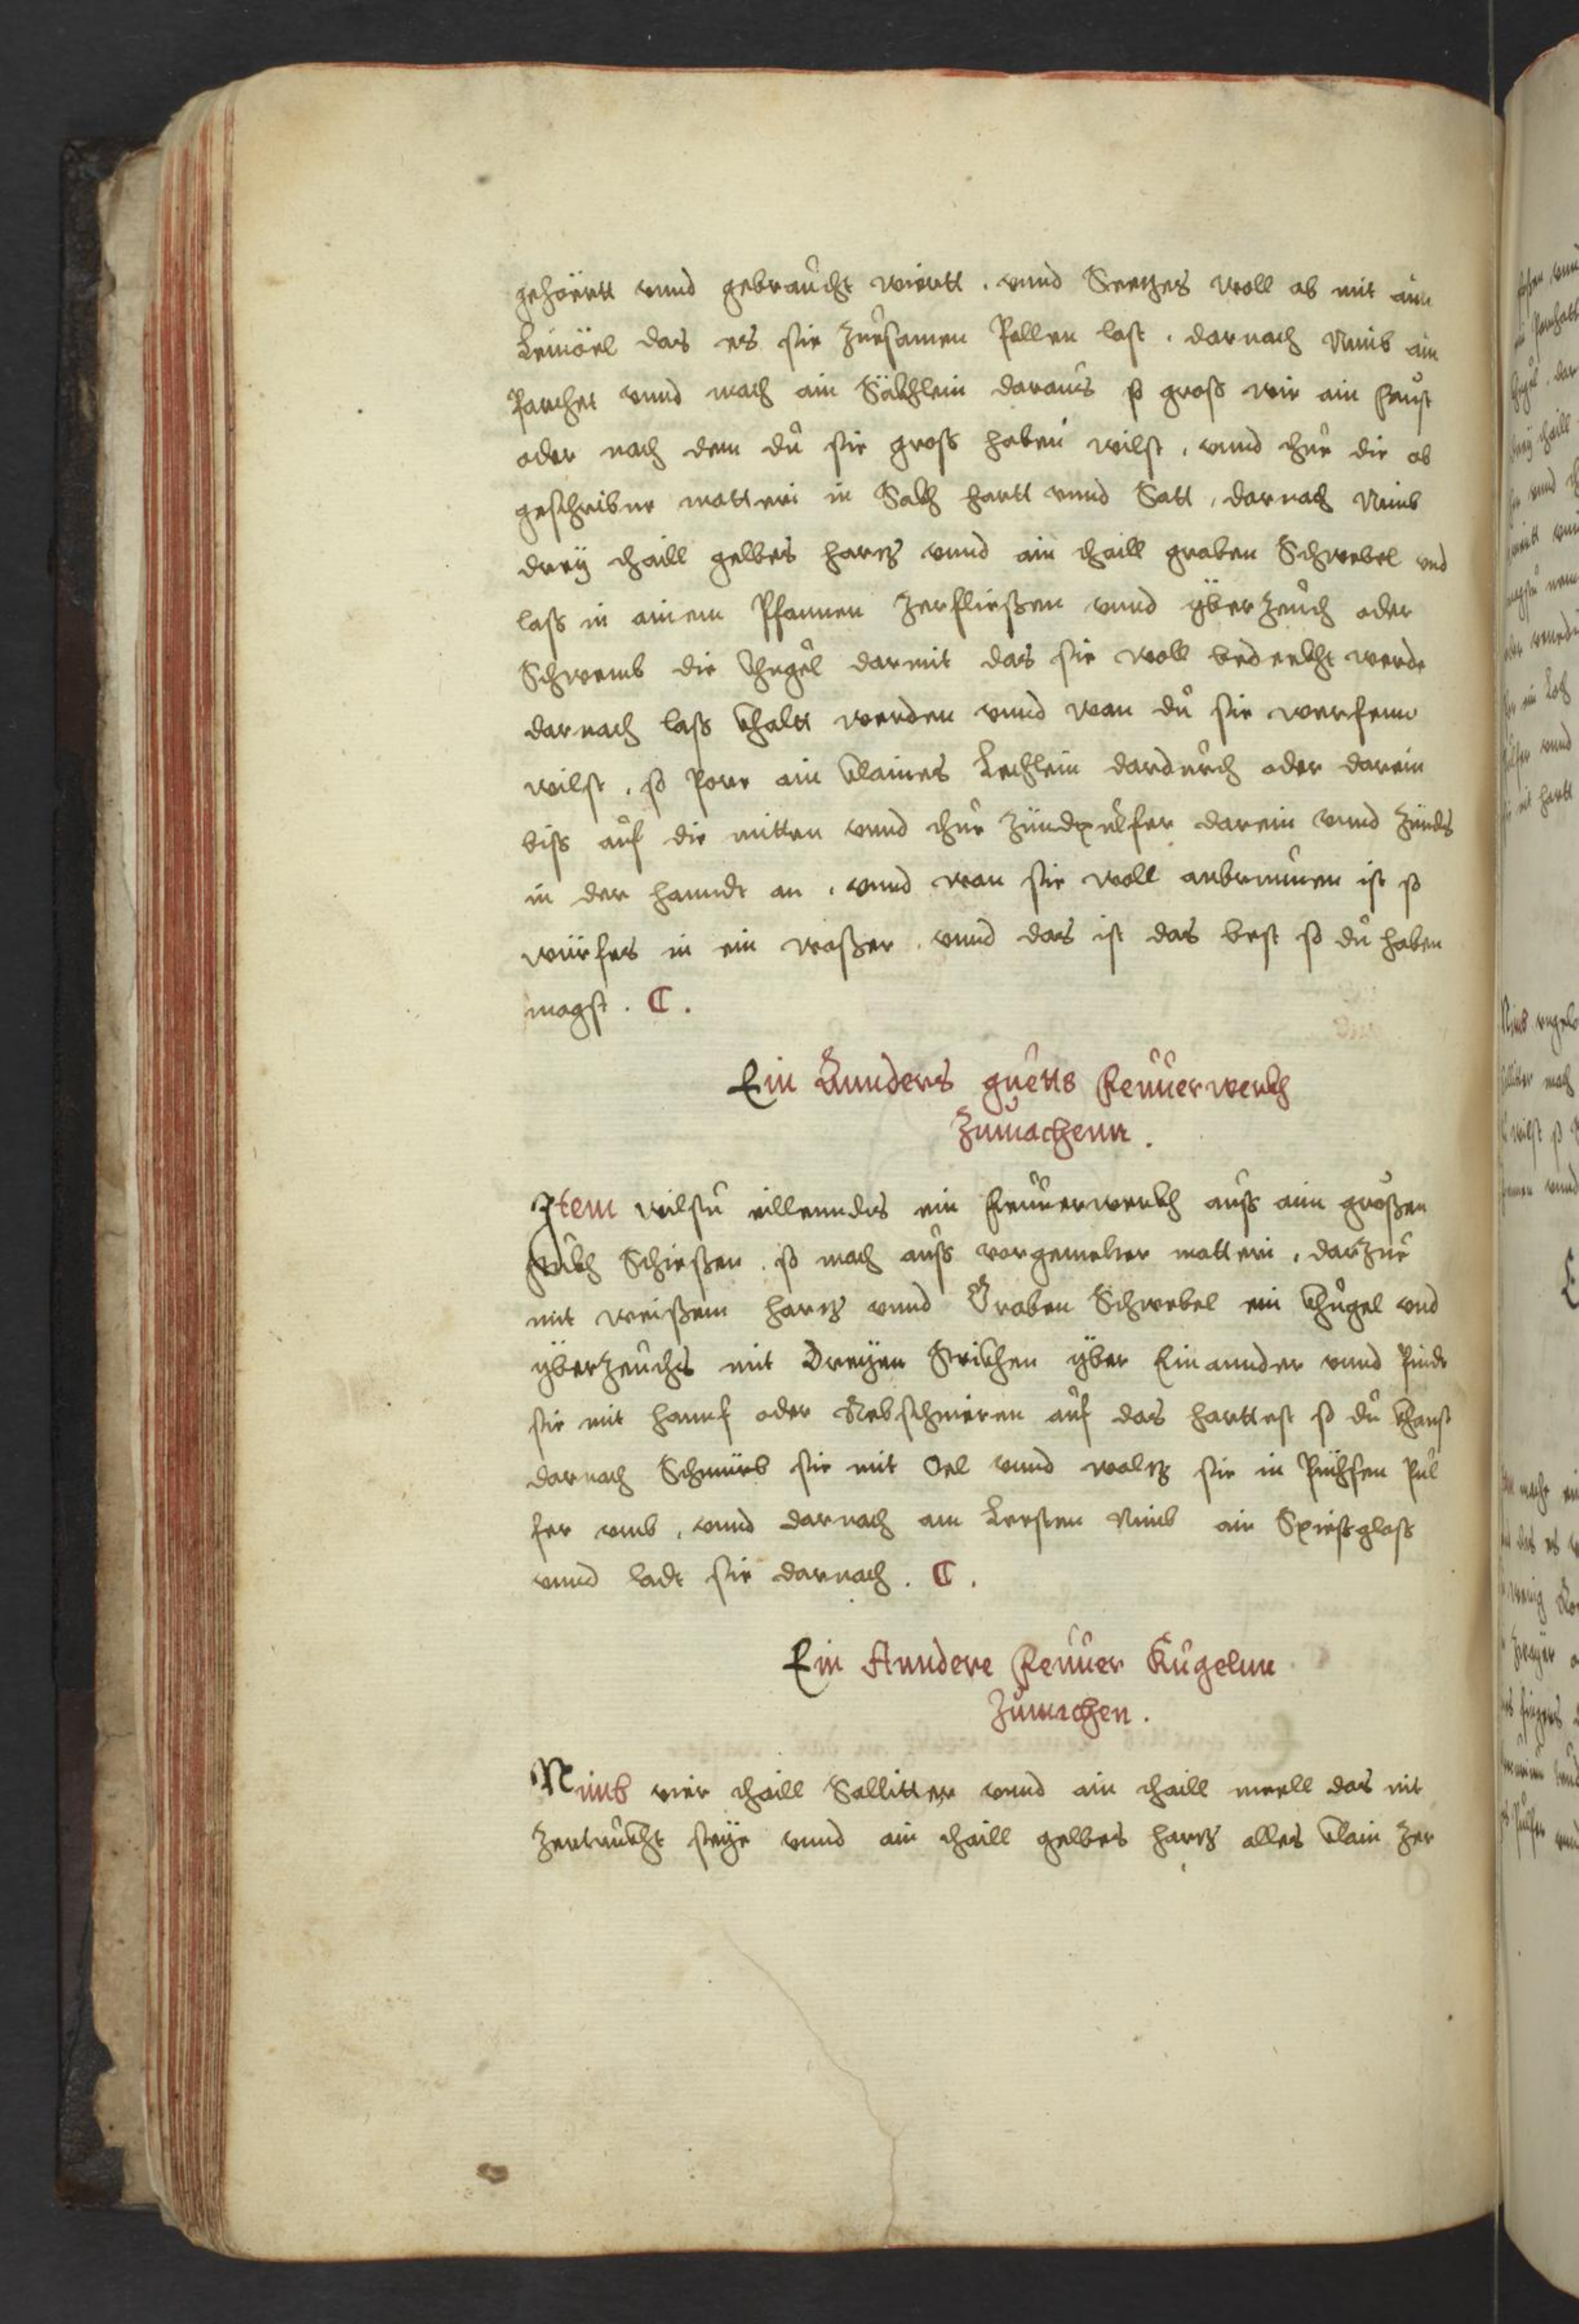 gehörtt vnnd gebraucht wirtt. vnnd Seeches woll ab mit aim
Leinöel das es sie zuesamen Pallen last. darnach Nimb ain
Parchet vnnd mach ain Säkhlein daraus so groß wie ain faust
oder nach dem du sie groß haben wilst, vnnd thue die ob
geschribne matteri in Sakh hartt vnnd Satt, darnach Nimb
dreÿ thaill gelbes hartz vnnd ain thaill graben Schwebel vnd
laß in ainem Pfannen zerfließen vnnd ÿberzeuch oder
Schwemb die khugel darmit das sie woll bedeckht werde
darnach laß khaltt werden vnnd wan du sie werfenn
wilst, so Porr ain klaines Lechlein dardurch oder darein
biß auf die mitten vnnd thue zündpulfer darein vnnd zünds
in der hanndt an, vnnd wan sie woll anbrunnen ist so
würfes in ein waßer, vnnd das ist das best so du haben
magst. C.
Ein Annders guetts Feuuerwerkh
Zumachenn.
Item wilstu eillenndts ein Feuuerwerkh auß aim großen
stukh Schießen, so mach auß vorgemelter matteri, darzue
mit weißem hartz vnnd Graben Schwebel ein khugel vnd
ÿberzeuchs mit Dreÿen Strikhen ÿber Einannder vnnd Pindt
sie mit hannf oder Rebschnieren auf das harttest so du khanst
darnach Schmürb sie mit Oel vnnd waltz sie in Püchsen Pul
fer vmb, vnnd darnach am Lersten Nimb ain Spießglaß
vnnd ladt sie darnach. C.
Ein Anndere Feuuer Kugelnn
Zumachen.
Nimb vier thaill Sallitter vnnd ain thaill meell das nit
zertruckht seÿe vnnd ain thaill gelbes hartz alles klain zer